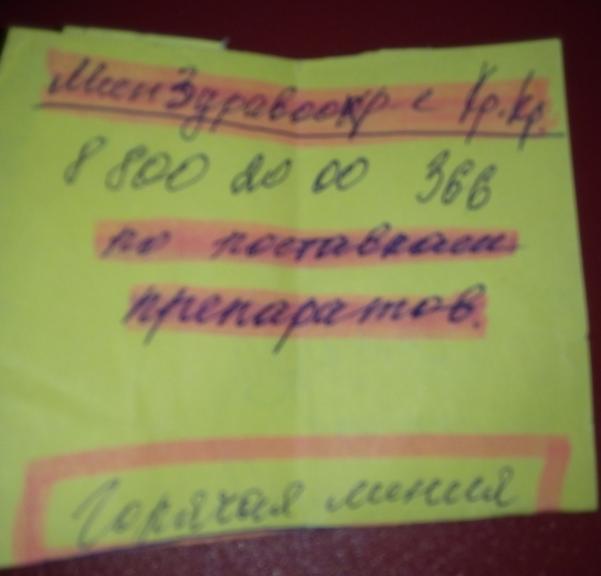 МинЗдравоохр с Кр.Кр.
8 800 20 00 366
по поставкам
препаратов.
Горячая линия